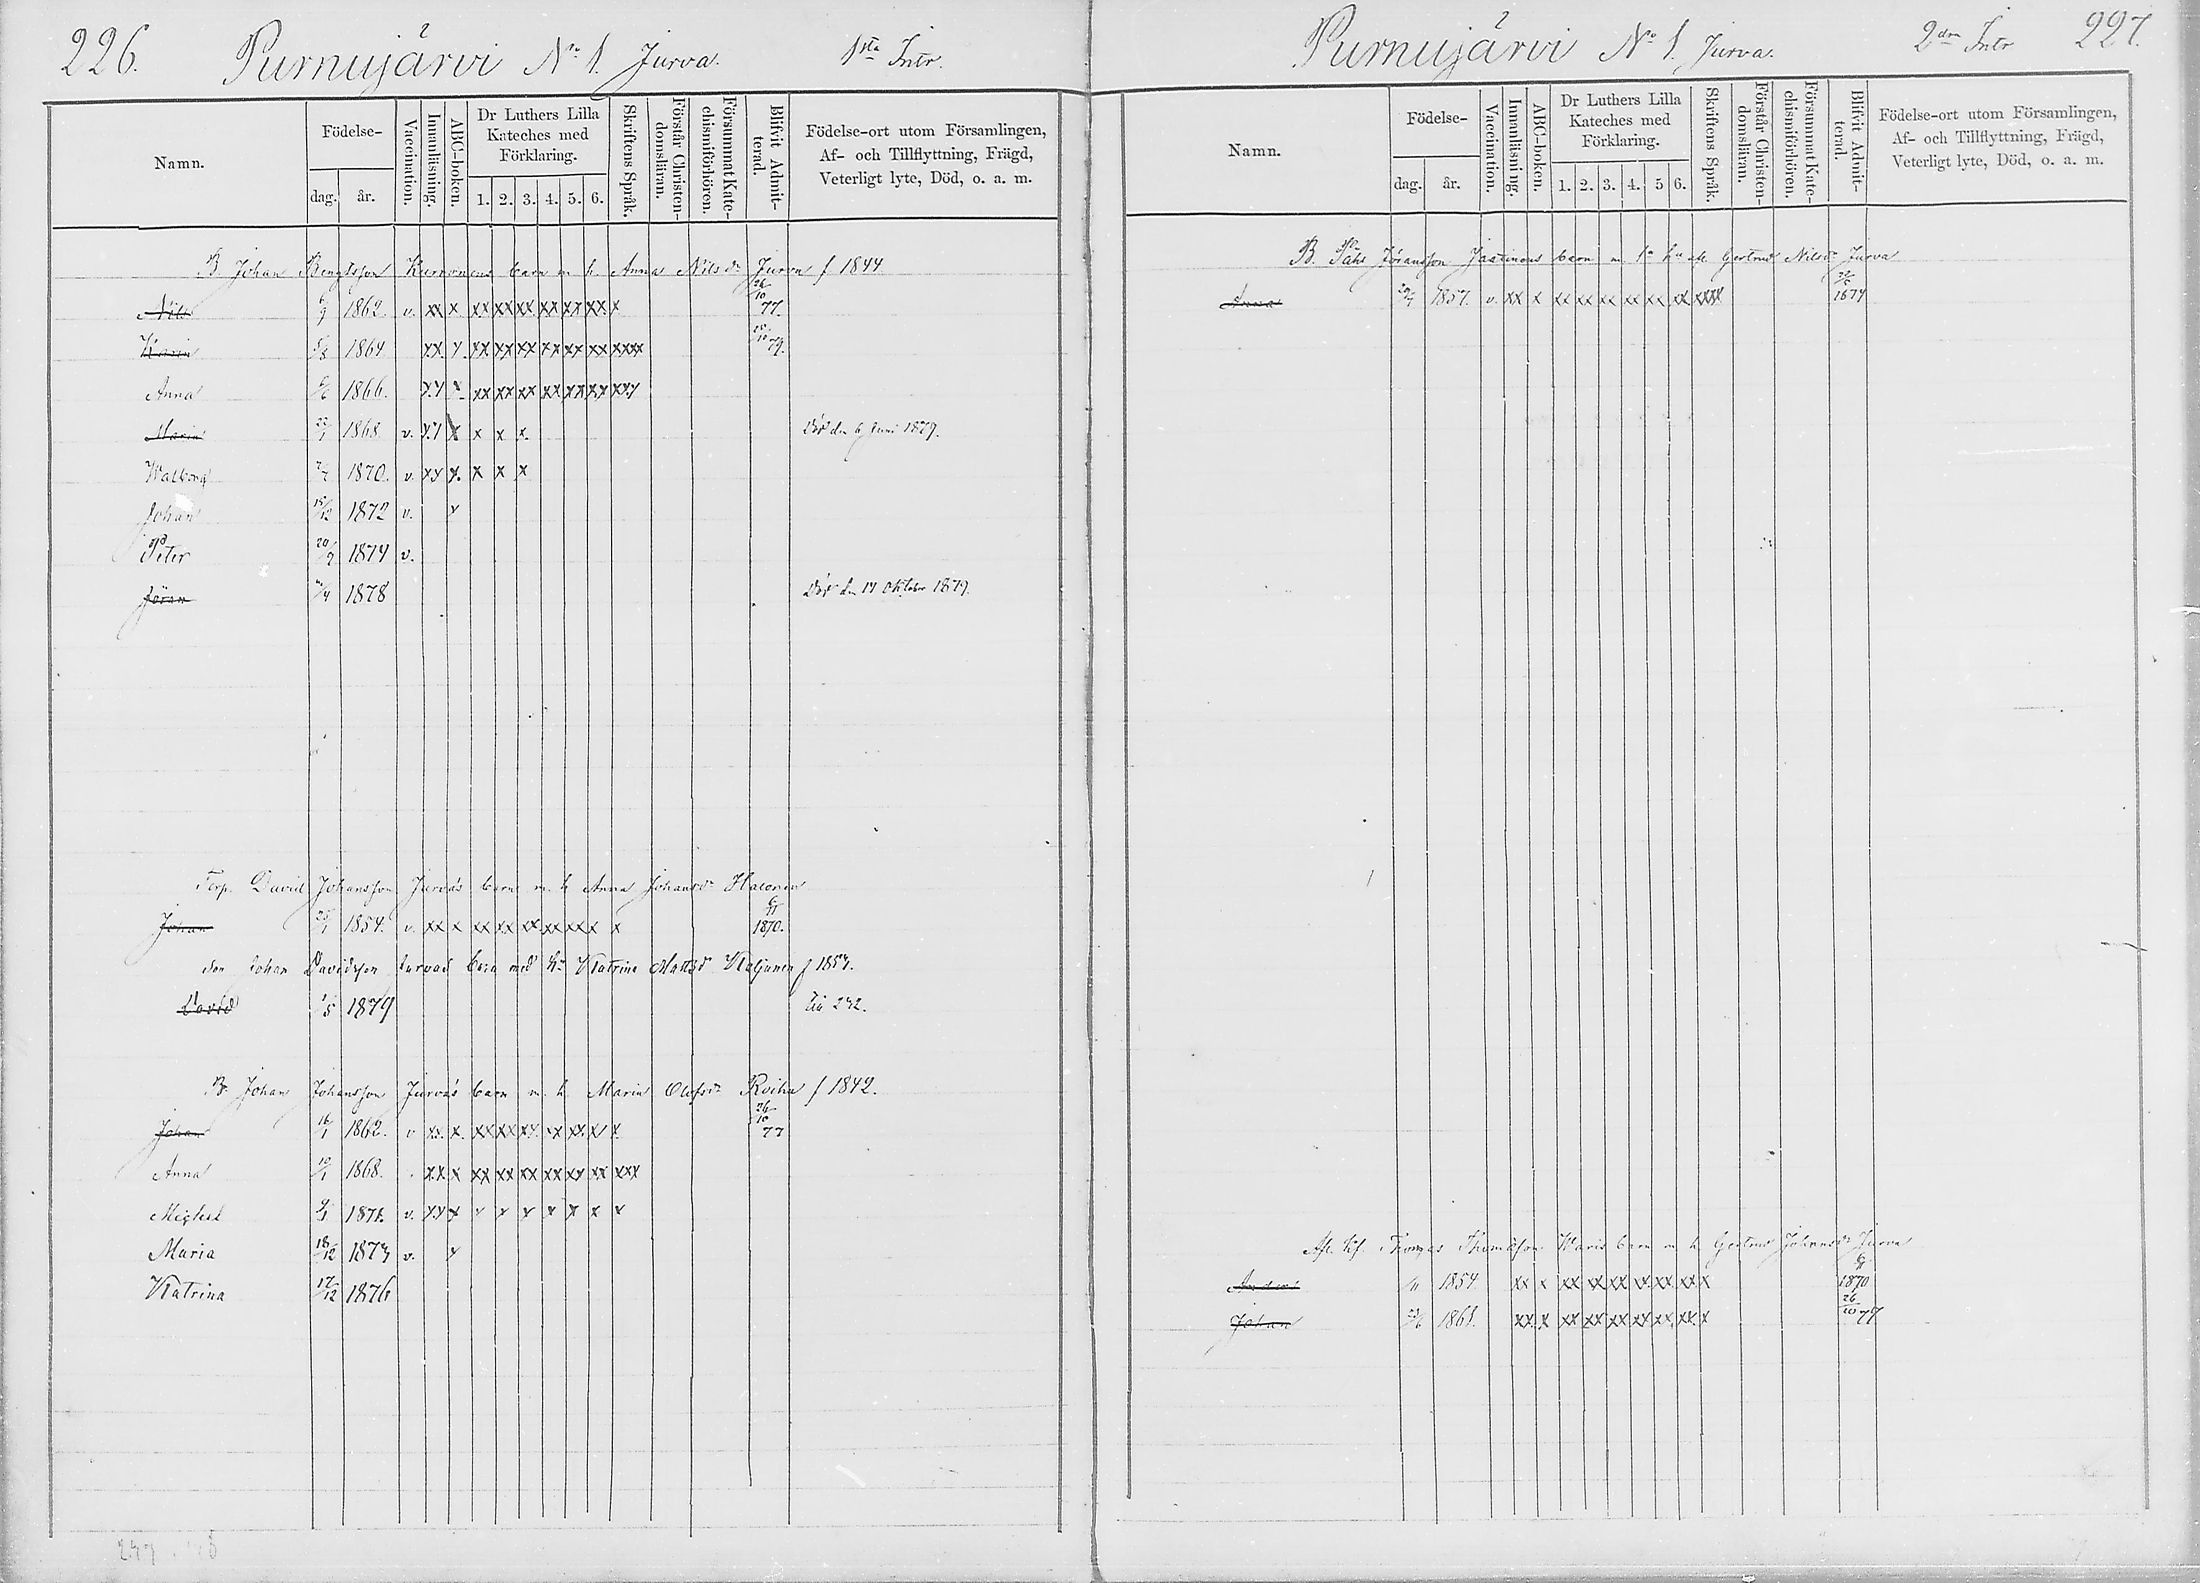 226. Purnujärvi No 1. Jurva. 1sta Intr.
Namn.
Födelse-
dag. år.
Vaccination.
Innanläsning.
ABC-boken.
Dr Luthers Lilla Kateches med Förklaring.
1. 2. 3. 4. 5. 6.
Skriftens Språk.
Förstår Christendomsläran.
Försummat Katechismiförhören.
Blifvit Admitterad.
Födelse-ort utom Församlingen, Af- och Tillflyttning, Frägd, Veterligt lyte, Död, o. a. m.
B. Johan Bengtsson barn m. h. Anna Nilsdr Jurva f 1844
Nils 1862. v. xx x xx xx xx xx xx xx x 26/10 77.
Karin 1864 xx x xx xx xx xx xx xx xxxx 79.
Anna 1866. xx x xx xx xx xx xx xx xxx
Maria 1868. v. xx x x x x Död den 6 Juni 1879.
Walborg 1870. v. xx x. x x x
Johan 15/12 1872 v. x
Peter 20/9 1874 v.
Jöran 1878 Död den 17 Oktober 1879.
Torp. David Johansson Jurva's barn m. h. Anna Johansdr Halonen
Johan 1854. v. xx x xx xx xx xx xx x x 6/11 1870.
Son Johan Davidsson Jurvas barn med h. Katrina Mattsdr f 1857.
David 1/5 1879 242.
B. Johan Johansson Jurva's barn m. h. Maria Olofsdr Roiha f 1842.
Johan 16/1 1862. v xx. x. xx xx xx. xx xx. xx x 26/10 77
Anna 10/1 1868. xx x xx xx xx xx xx xx xxx
Michel 1871. v. xx x x x x x x x x
Maria 18/12 1873 v. x
Katrina 17/12 1876
Purnujärvi No 1. Jurva. 2dra Intr 227.
Namn.
Födelse-
dag. år.
Vaccination.
Innanläsning.
ABC-boken.
Dr Luthers Lilla Kateches med Förklaring.
1. 2. 3. 4. 5 6.
Skriftens Språk.
Förstår Christendomsläran.
Försummat Katechismiförhören.
Blifvit Admitterad.
Födelse-ort utom Församlingen, Af- och Tillflyttning, Frägd, Veterligt lyte, Död, o. a. m.
B. Påhl Jöransson Jaatinens barn m. afl. Gertrud Nilsdr Jurva
Anna 1857. v. xx x xx xx xx xx xx xx xxxx
Afl. Thomas Thomasson barn m. h. Gertrud Johansdr Jurva
Anders 1854 xx x xx xx xx xx xx xx x 6/11 1870
Johan 1861. xx x xx xx xx xx xx. xx x 26/10 77